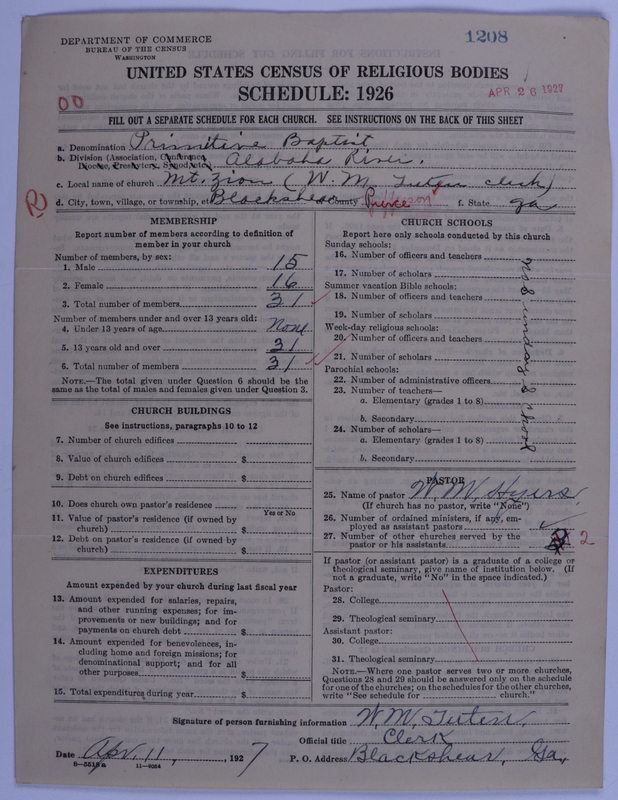 DEPARTMENT OF COMMERCE
BUREAU OF THE CENSUS
WASHINGTON
1208
UNITED STATES CENSUS OF RELIGIOUS BODIES
SCHEDULE: 1926
APR 26 1927
00
FILL OUT A SEPARATE SCHEDULE FOR EACH CHURCH. SEE INSTRUCTIONS ON THE BACK OF THIS SHEET
a. Denomination Primitive Baptist
b. Division (Association, Conference, Diocese, Presbytery, Synod, etc.) Alabaha River.
c. Local name of church Mt. Zion (W. M. Tuten clerk)
d. City, town, village, or township, etc. Blackshear County Pierce f. State Ga
R
MEMBERSHIP
Report number of members according to definition of
member in your church
Number of members, by sex:
1. Male 15
2. Female 16
3. Total number of members 31
Number of members under and over 13 years old:
4. Under 13 years of age None
5. 13 years old and over 31
6. Total number of members 31
NOTE.—The total given under Question 6 should be the
same as the total of males and females given under Question 3.
CHURCH BUILDINGS
See instructions, paragraphs 10 to 12
7. Number of church edifices
8. Value of church edifices $
9. Debt on church edifices $
10. Does church own pastor's residence
Yes or No
11. Value of pastor's residence (if owned by
church) $
12. Debt on pastor's residence (if owned by
church) $
EXPENDITURES
Amount expended by your church during last fiscal year
13. Amount expended for salaries, repairs,
and other running expenses; for im-
provements or new buildings; and for
payments on church debt $
14. Amount expended for benevolences, in-
cluding home and foreign missions; for
denominational support; and for all
other purposes $
15. Total expenditures during year $
CHURCH SCHOOLS
Report here only schools conducted by this church
Sunday schools:
16. Number of officers and teachers
17. Number of scholars
Summer vacation Bible schools:
18. Number of officers and teachers
19. Number of scholars
Week-day religious schools:
20. Number of officers and teachers
21. Number of scholars
Parochial schools:
22. Number of administrative officers
23. Number of teachers—
a. Elementary (grades 1 to 8)
b. Secondary
24. Number of scholars—
a. Elementary (grades 1 to 8)
b. Secondary
no Sunday School
PASTOR
25. Name of pastor W. W. Hyers
(If church has no pastor, write "None")
26. Number of ordained ministers, if any, em-
ployed as assistant pastors
27. Number of other churches served by the
pastor or his assistants 2
If pastor (or assistant pastor) is a graduate of a college or
theological seminary, give name of institution below. (If
not a graduate, write "No" in the space indicated.)
Pastor:
28. College
29. Theological seminary
Assistant pastor:
30. College
31. Theological seminary
NOTE.—Where one pastor serves two or more churches,
Questions 28 and 29 should be answered only on the schedule
for one of the churches; on the schedules for the other churches,
write "See schedule for church."
Signature of person furnishing information W. M. Tuten
Official title Clerk
Date Apr. 11, 1927 P. O. Address Blackshear, Ga.
8—5519 a 11—9024